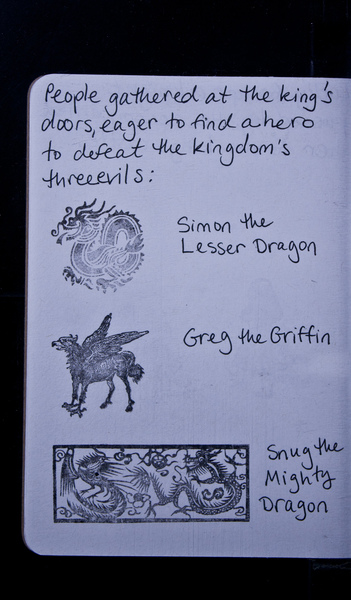 People gathered at the king's
doors, eager to find a hero
to defeat the kingdom's
threeevils:
Simon the
Lesser Dragon
Greg the Griffin
Snug the
Mighty
Dragon